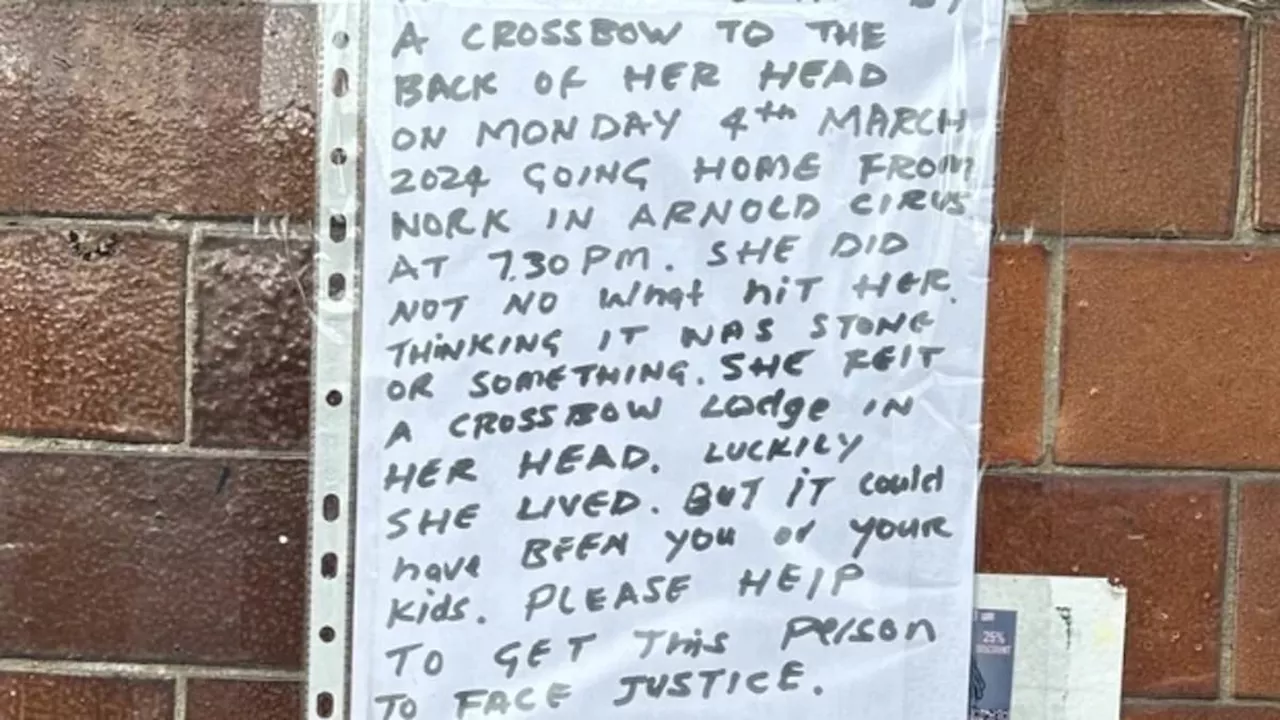 A CROSSBOW TO THE
BACK OF HER HEAD
ON MONDAY 4th MARCH
2024 GOING HOME FROM
WORK IN ARNOLD CIRUS
AT 7.30PM. SHE DID
NOT NO What hiT HER.
THiNKING IT WAS STONE
OR SOMETHING. SHE FEIT
A CROSSBOW Lodge IN
HER HEAD. LUCKILY
SHE LIVED. BUT iT could
have BEEN you or your
kids. PLEASE HElP
TO GET This Person
TO FACE JUSTICE.
25%
DISCOUNT